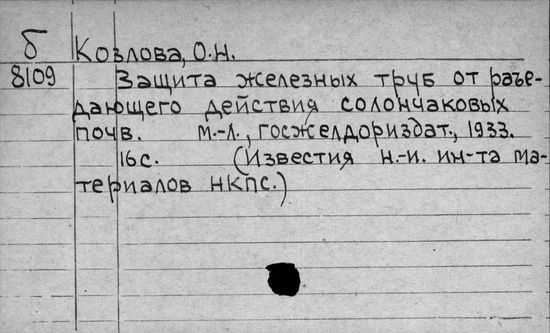 б Козлова, О.Н.
8109 Защита железных труб от разъе-
дающего действия солончаковых
почв. М.-Л., Госжелдориздат., 1933.
16с. (Известия н.-и. ин-та ма-
териалов НКПС.)